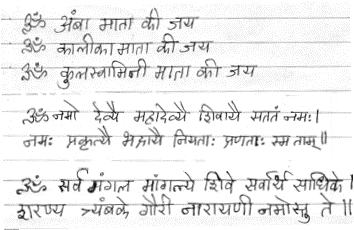 ॐ अंबा माता की जय
ॐ कालीका माता की जय
ॐ कुलस्वामिनी माता की जय
ॐ नमो देव्यै महादेव्यै शिवायै सततं नमः।
नमः प्रकृत्यै भद्रायै नियताः प्रणताः स्म ताम्॥
ॐ सर्व मंगल मांगल्ये शिवे सर्वार्थ साधिके।
शरण्य त्र्यंबके गौरी नारायणी नमोस्तु ते॥